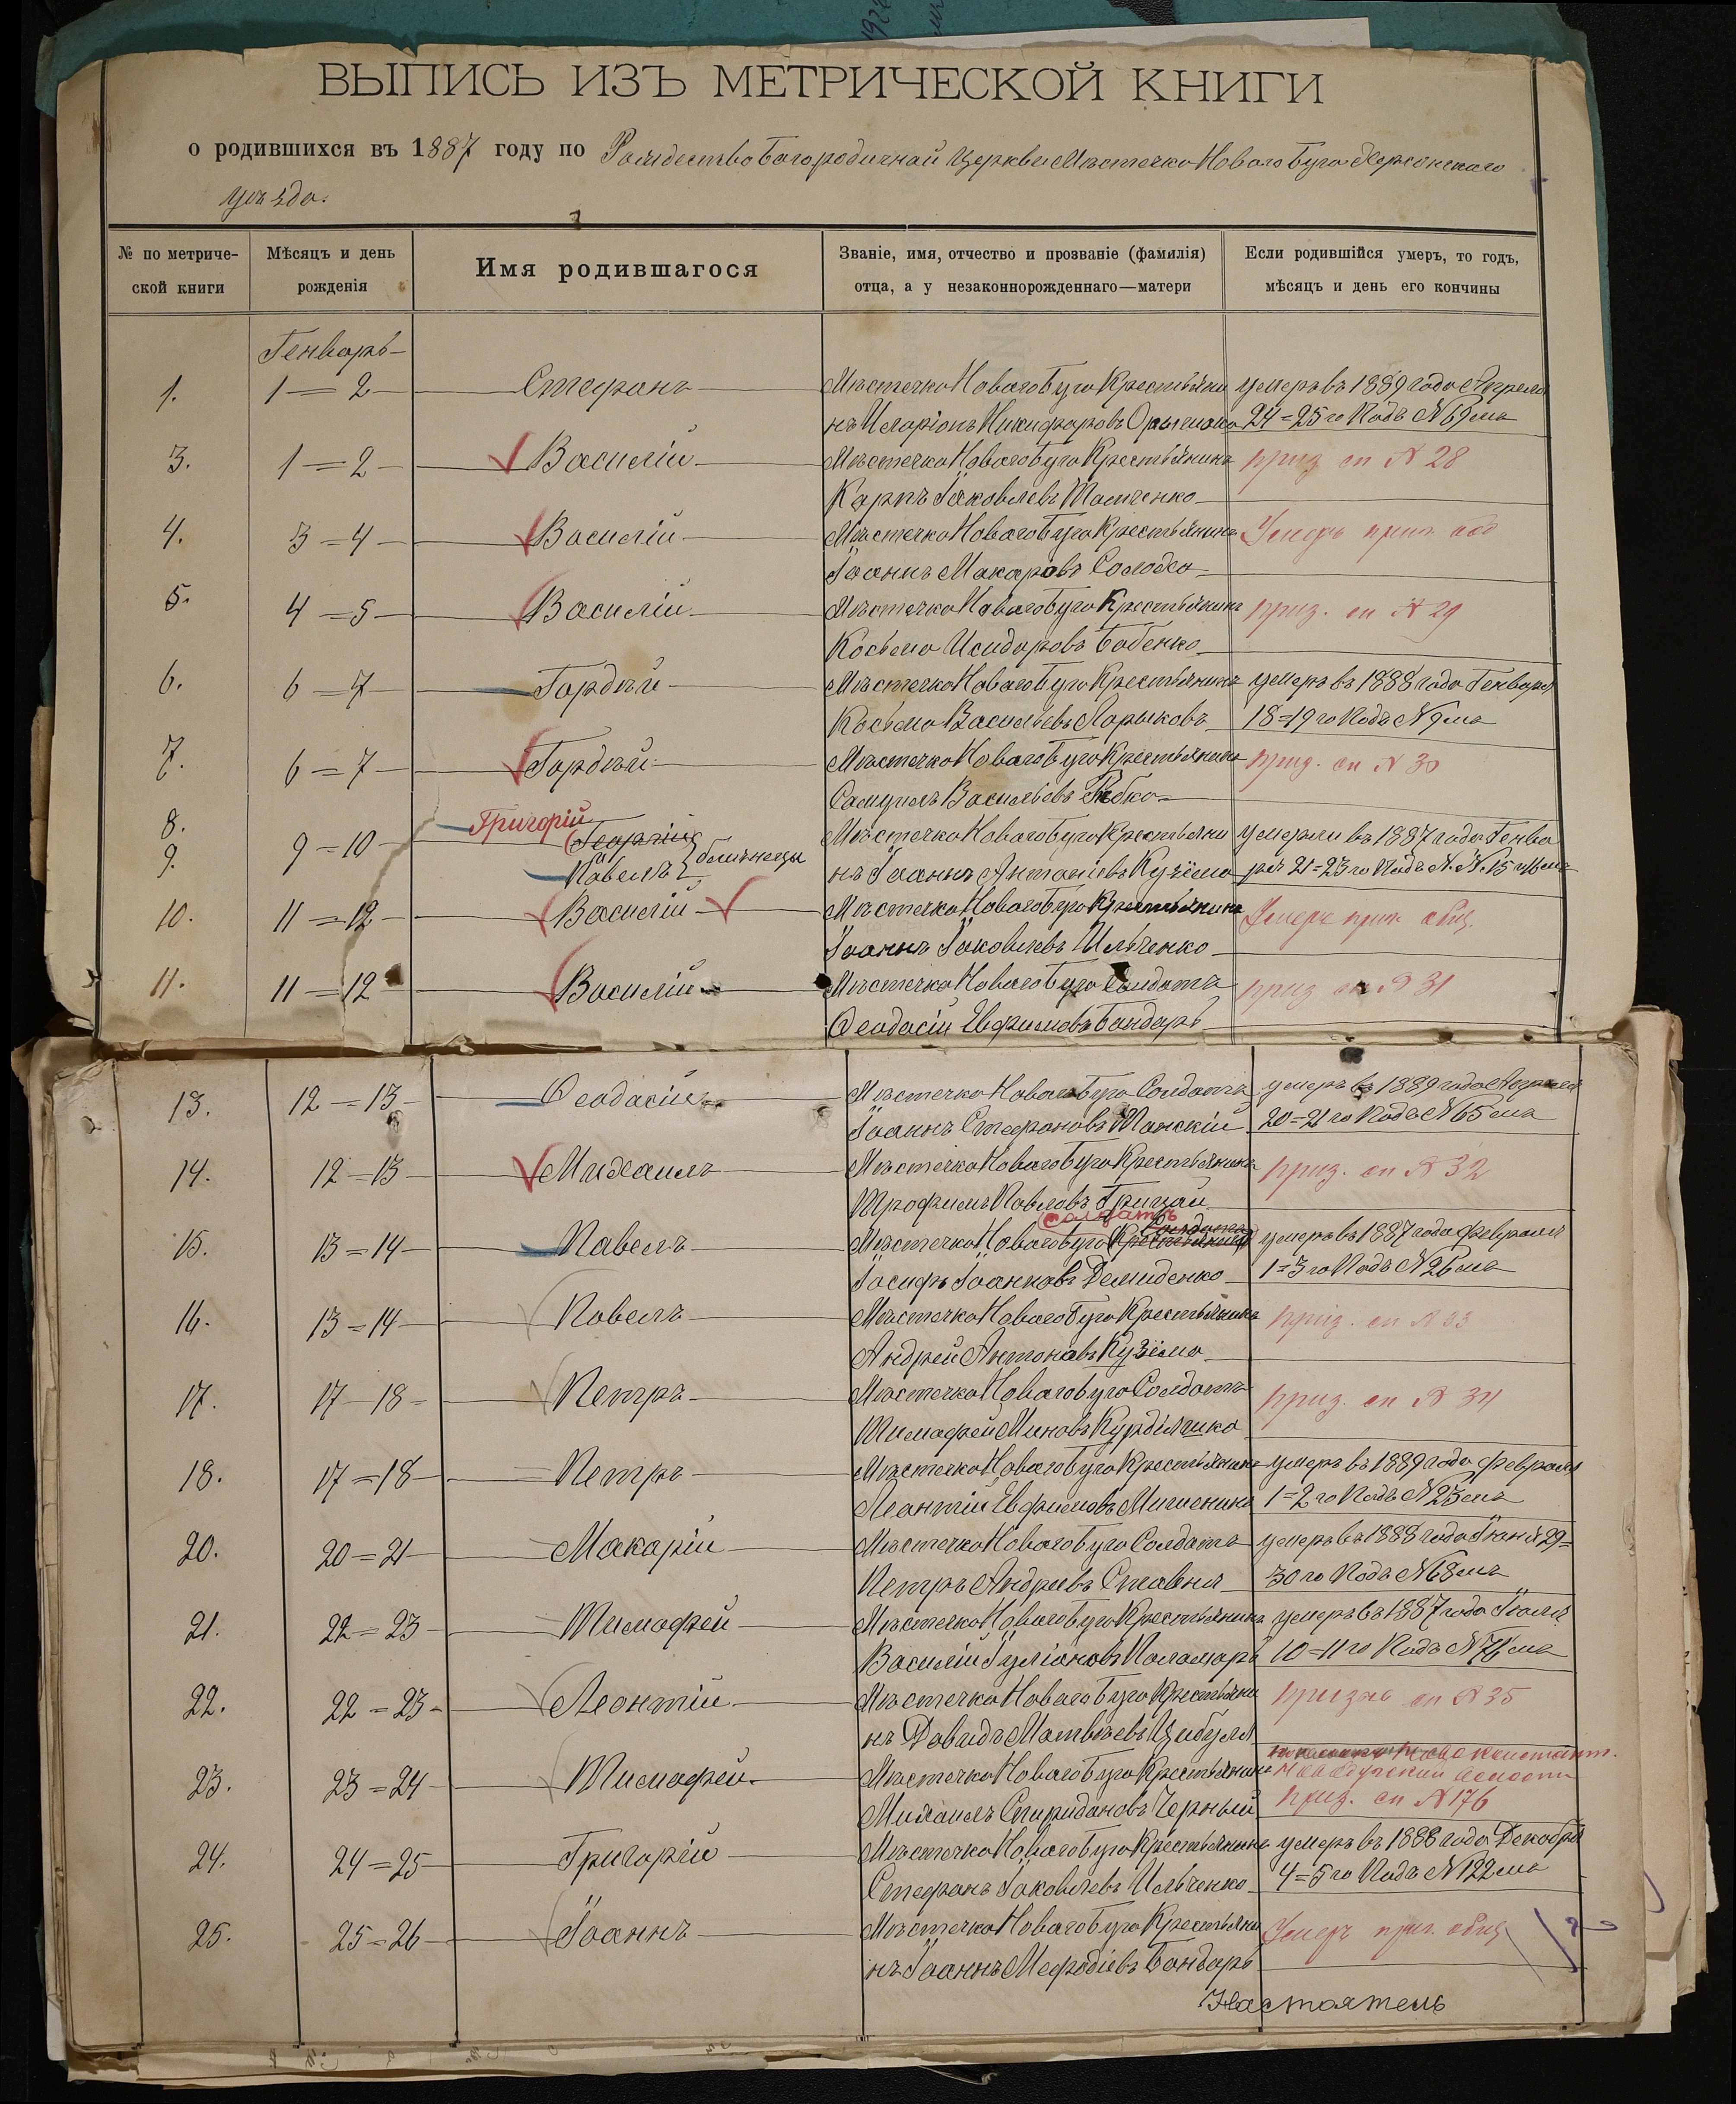 ВЫПИСЬ ИЗЪ МЕТРИЧЕСКОЙ КНИГИ
о родившихся въ 1887 году по Рождество Богородичной Церкви Мѣстечка Новаго Буга Херсонскаго
уѣзда.
№ по метриче-
ской книги
Мѣсяцъ и день
рожденія
Имя родившагося
Званіе, имя, отчество и прозваніе (фамилія)
отца, а у незаконнорожденнаго—матери
Если родившійся умеръ, то годъ,
мѣсяцъ и день его кончины
Генварь
1. 1=2 Стефанъ Мѣстечка Новаго Буга Крестьяни умеръ въ 1889 года Апреля
нъ Иларіонъ Никифоровъ 24=25 го Подъ № 69 мъ
3. 1=2 Василій Мѣстечка Новаго Буга Крестьянинъ приз сп № 28
Карпъ Іаковлевъ Ткаченко
4. 3=4 Василій Мѣстечка Новаго Буга Крестьянинъ Умеръ приг.
Іоаннъ Макаровъ Солодко
5. 4=5 Василій Мѣстечка Новаго Буга Крестьянинъ приз. сп № 29
Косьма Исидоровъ Бабенко
6. 6=7 Гордѣй Мѣстечка Новаго Буга Крестьянинъ умеръ въ 1888 года Генваря
Косьма Васильевъ Ларыковъ 18=19 го Подъ № 9 мъ
7. 6=7 Гордѣй Мѣстечка Новаго Буга Крестьянинъ приз. сп № 30
Самуилъ Васильевъ Рябко
8. Григорій
9. 9=10 Георгій Мѣстечка Новаго Буга Крестьяни умерли въ 1887 года Генва
Павелъ близнецы нъ Іоаннъ Антоніевъ Кузёма ря 21=23 го Подъ №.№. 15 и 16 мъ
10. 11=12 Василій Мѣстечка Новаго Буга Крестьянинъ Умеръ приг общ.
Іоаннъ Іаковлевъ Ильченко
11. 11=12 Василій Мѣстечка Новаго Буга Солдатъ приз сп № 31
Ѳеодосій Евфимовъ Бондарь
13. 12=13 Ѳеодосій Мѣстечка Новаго Буга Солдатъ умеръ въ 1889 года Апреля
Іоаннъ Стефановъ Манскій 20=21 го Подъ № 65 мъ
14. 12=13 Михаилъ Мѣстечка Новаго Буга Крестьянинъ приз. сп № 32
Трофимъ Павловъ Грицай
солдатъ
Солдатъ
15. 13=14 Павелъ Мѣстечка Новаго Буга Крестьянинъ умеръ въ 1887 года Февраля
Іосифъ Іоанновъ Демиденко 1=3 го Подъ № 26 мъ
16. 13=14 Павелъ Мѣстечка Новаго Буга Крестьянинъ приз. сп № 33
Андрей Антоновъ Кузёма
17. 17=18 Петръ Мѣстечка Новаго Буга Солдатъ приз. сп № 34
Тимофей Миновъ
18. 17=18 Петръ Мѣстечка Новаго Буга Крестьянинъ умеръ въ 1889 года Февраля
Леонтій Евфимовъ 1=2 го Подъ № 23 мъ
20. 20=21 Макарій Мѣстечка Новаго Буга Солдатъ умеръ въ 1888 года Іюня 29=
Петръ Андреевъ 30 го Подъ № 68 мъ
21. 22=23 Тимофей Мѣстечка Новаго Буга Крестьянинъ умеръ въ 1887 года Іюля
Василій Іуліановъ Паламарь 10=11 го Подъ № 76 мъ
22. 22=23 Леонтій Мѣстечка Новаго Буга Крестьяни призыв сп № 35
нъ Давидъ Матвѣевъ Цибуля
23. 23=24 Тимофей Мѣстечка Новаго Буга Крестьянинъ волости
Михаилъ Спиридоновъ Черный приз. сп № 176
24. 24=25 Григорій Мѣстечка Новаго Буга Крестьянинъ умеръ въ 1888 года Декабря
Стефанъ Іаковлевъ Ильченко 4=5 го Подъ № 122 мъ
25. 25=26 Іоаннъ Мѣстечка Новаго Буга Крестьяни Умеръ приг. общ
нъ Іоаннъ Мефодіевъ Бондарь
Настоятель